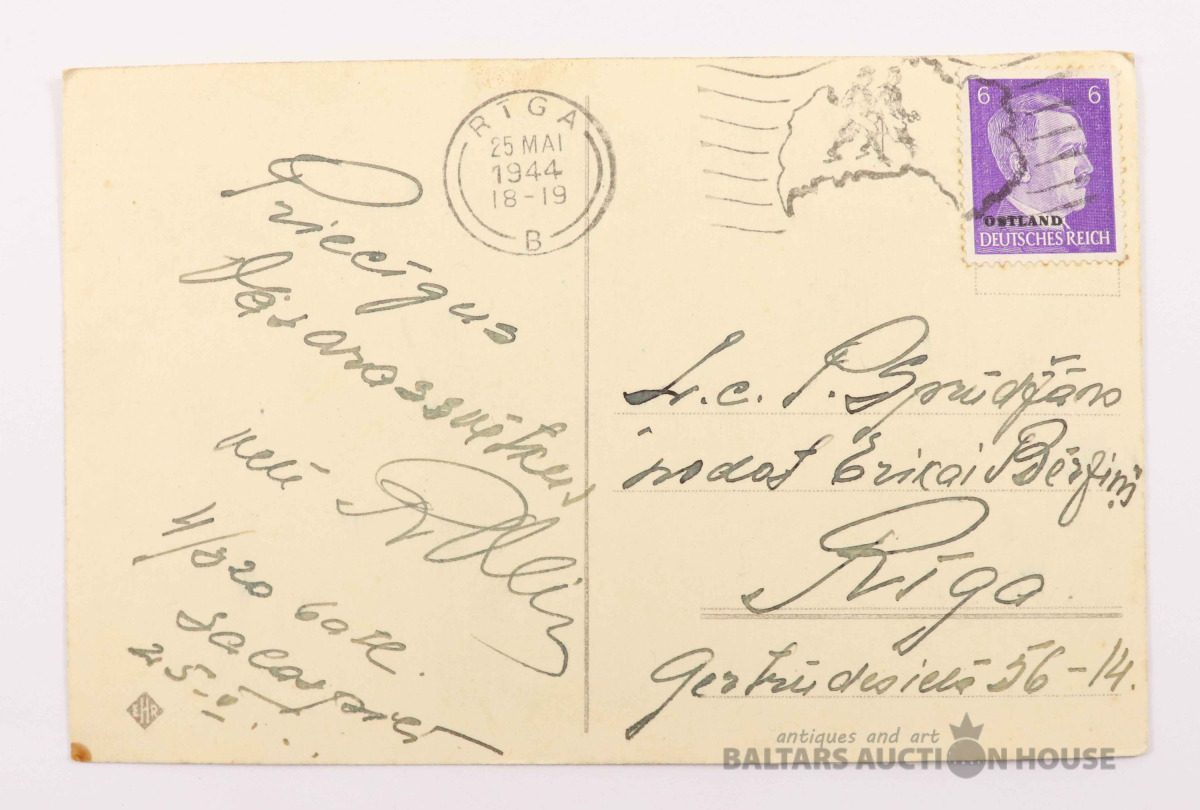 RĪGA
25 MAI
1944
18-19
B
6 6
OSTLAND
DEUTSCHES REICH
Priecīgus
Vasarassvētkus
vēlē
4/320 batl.
Salaspilī
25.V.
EHR
L.c. P. Sprūdžāns
nodot Erikai Bērziņ
Rīga.
Ģertrūdesielā 56-14.
antiques and art
BALTARS AUCTION HOUSE